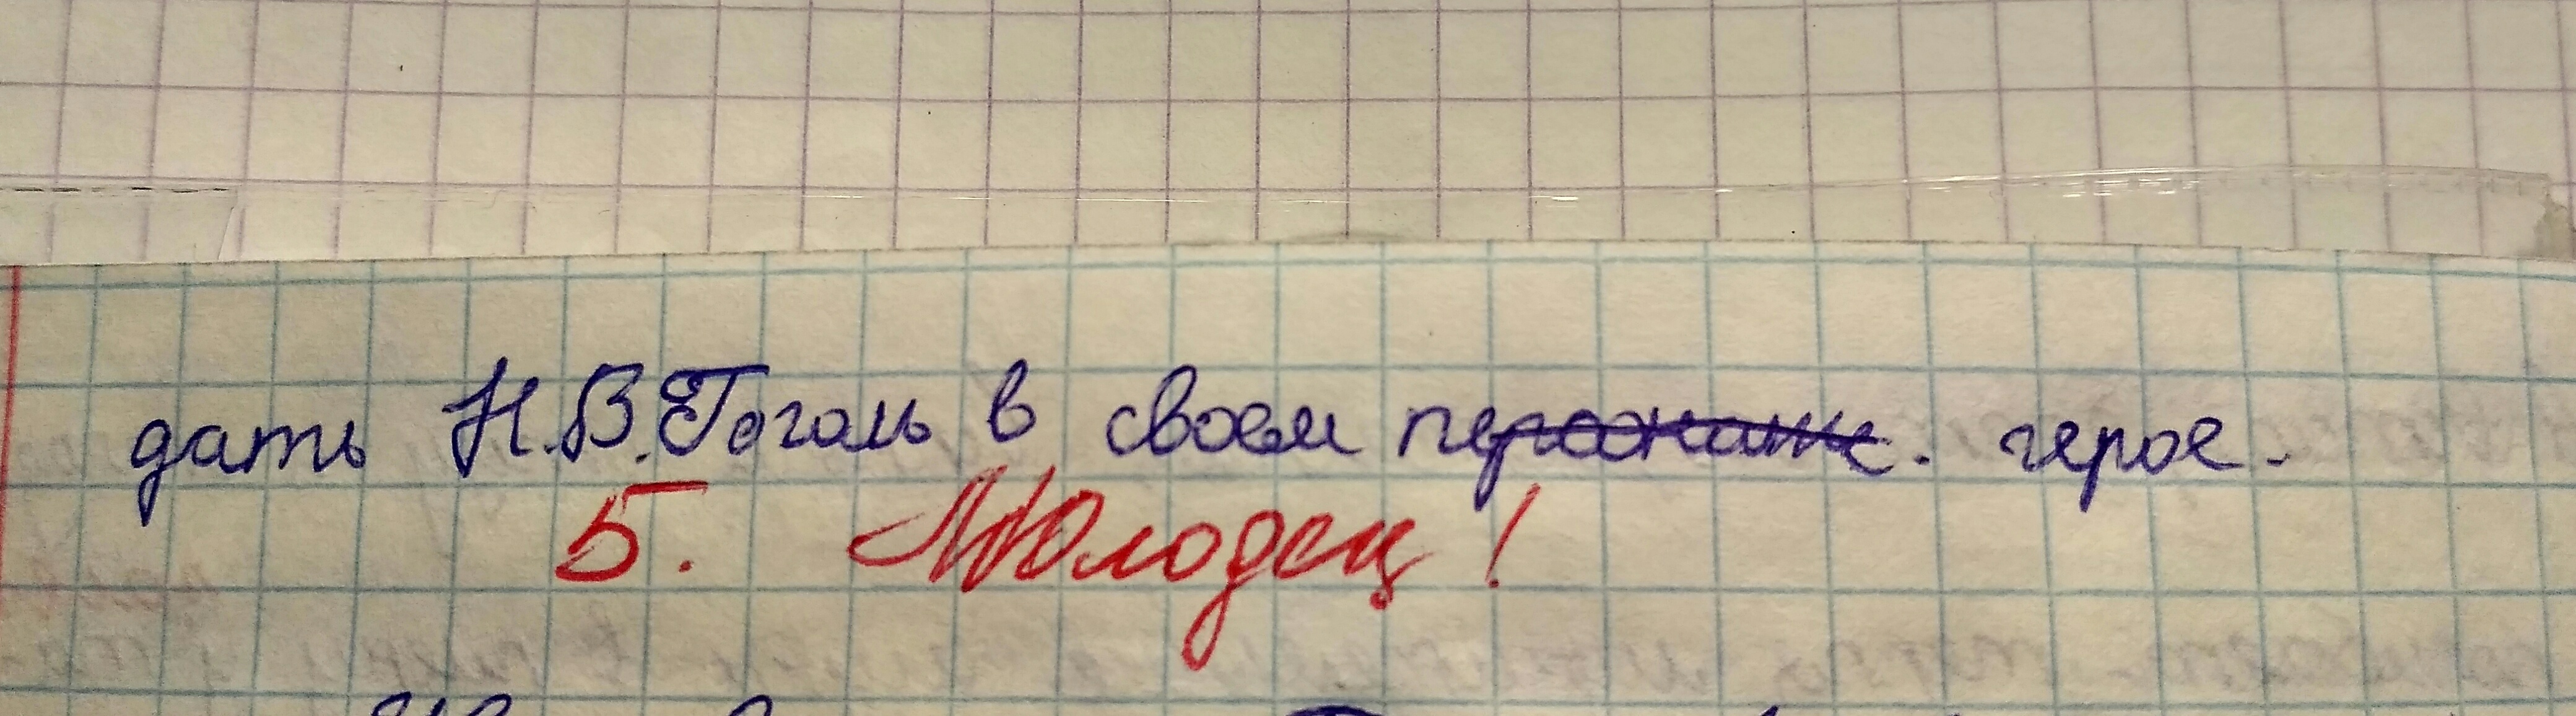 дать Н.В.Гоголь в своем персонаже. герое.
5. Молодец!